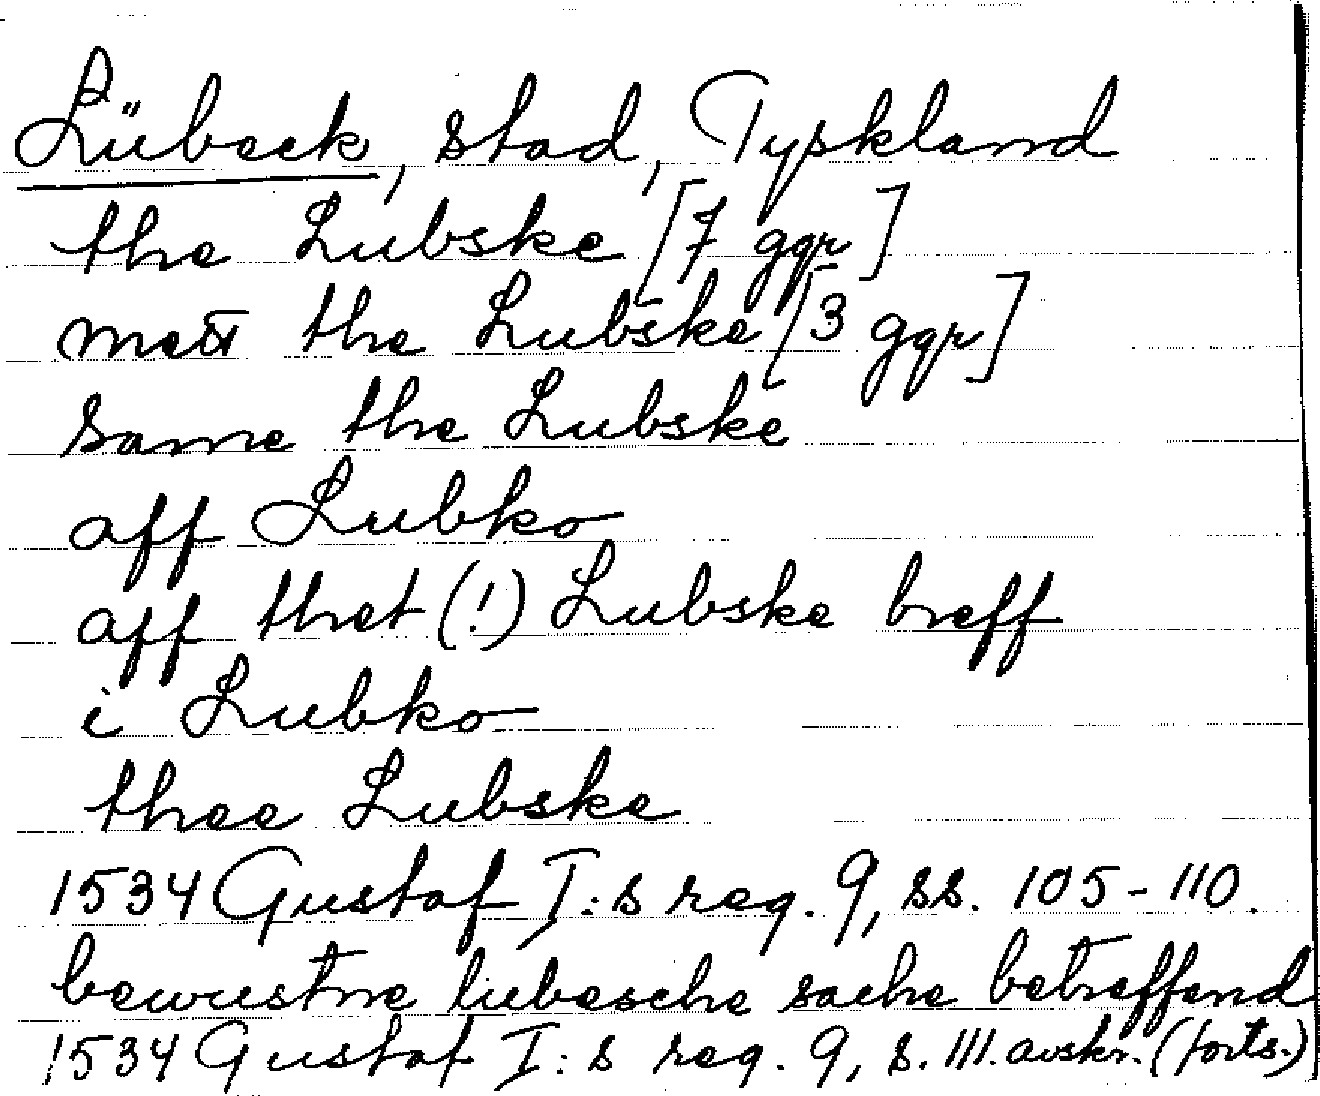 Lübeck, stad, Tyskland
the Lubske [7 ggr]
mett the Lubske [3 ggr]
same the Lubske
aff Lubko
aff thet (!) Lubske breff
i Lubko
thee Lubske
1534 Gustaf I:s reg. 9, ss. 105-110.
bewustne lubesche sache betreffend
1534 Gustaf I:s reg. 9, s. 111. avskr. (forts.)